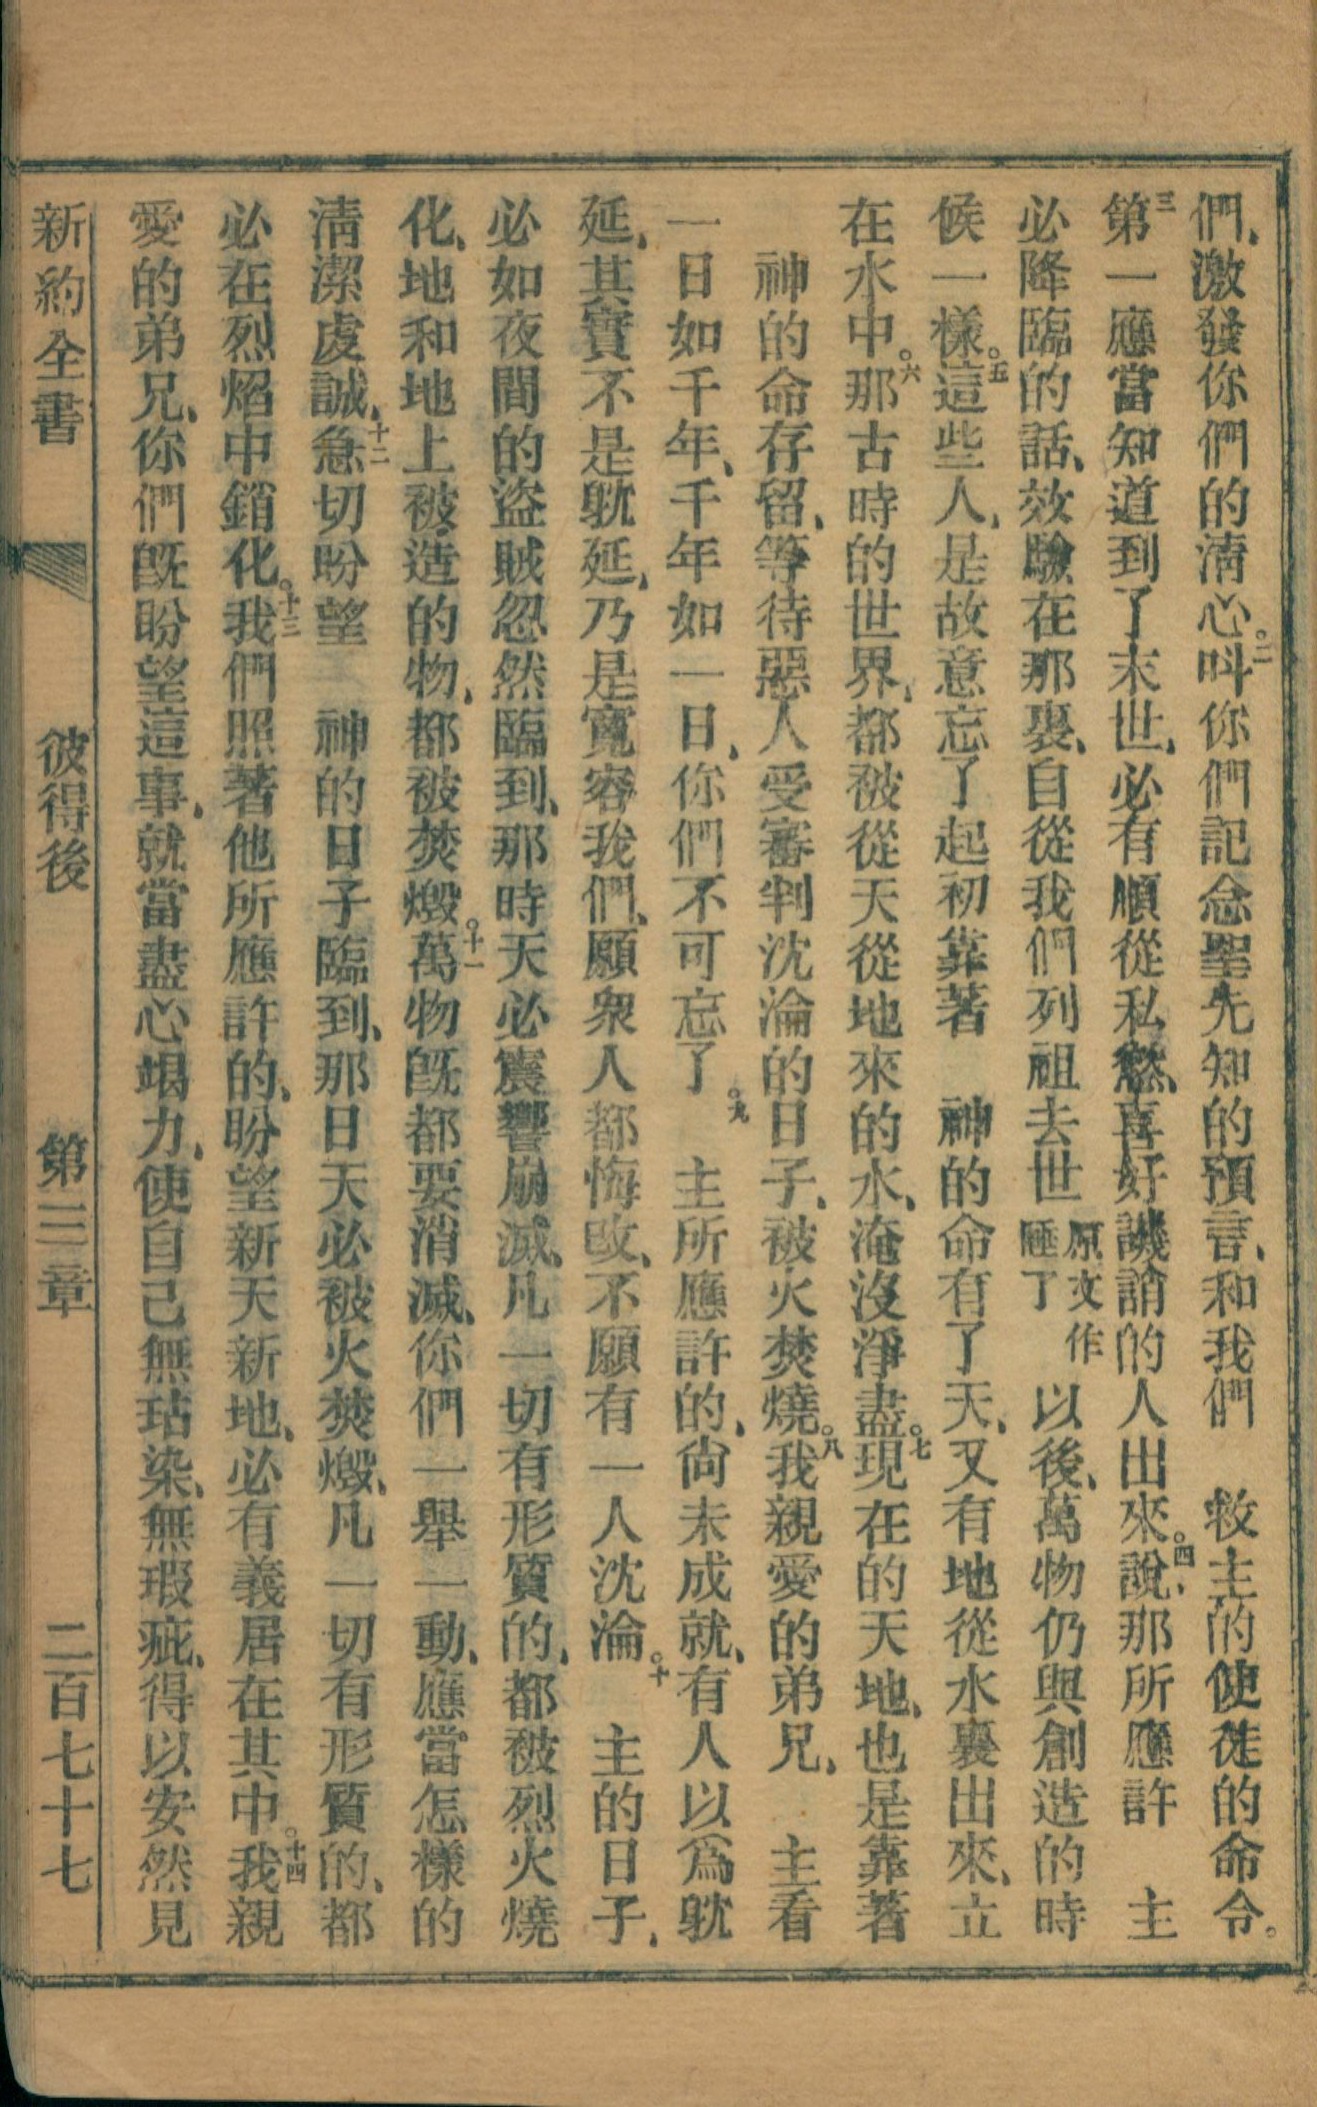 們、激發你們的清心。二呌你們記念聖先知的預言、和我們　救主的使徒的命令。
三第一應當知道到了末世、必有順從私慾、喜好譏誚的人出來。四說、那所應許　主
必降臨的話、效驗在那裏、自從我們列祖去世原文作睡了以後、萬物仍與創造的時
候一樣。五這些人、是故意忘了起初靠著　神的命有了天、又有地從水裏出來、立
在水中。六那古時的世界、都被從天從地來的水、淹沒淨盡。七現在的天地、也是靠著
神的命存留、等待惡人受審判沈淪的日子、被火焚燒。八我親愛的弟兄、　主看
一日如千年、千年如一日、你們不可忘了。九　主所應許的、尙未成就、有人以爲躭
延、其實不是躭延、乃是寬容我們、願衆人都悔改、不願有一人沈淪。十　主的日子、
必如夜間的盜賊忽然臨到、那時天必震響崩滅、凡一切有形質的、都被烈火燒
化、地和地上被造的物、都被焚燬。十一萬物旣都要消滅、你們一舉一動、應當怎樣的
淸潔虔誠、十二急切盼望　神的日子臨到、那日天必被火焚燬、凡一切有形質的、都
必在烈焰中銷化。十三我們照著他所應許的、盼望新天新地、必有義居在其中。十四我親
愛的弟兄、你們旣盼望這事、就當盡心竭力、使自己無玷染、無瑕疵、得以安然見
新約全書　彼得後　第三章　二百七十七